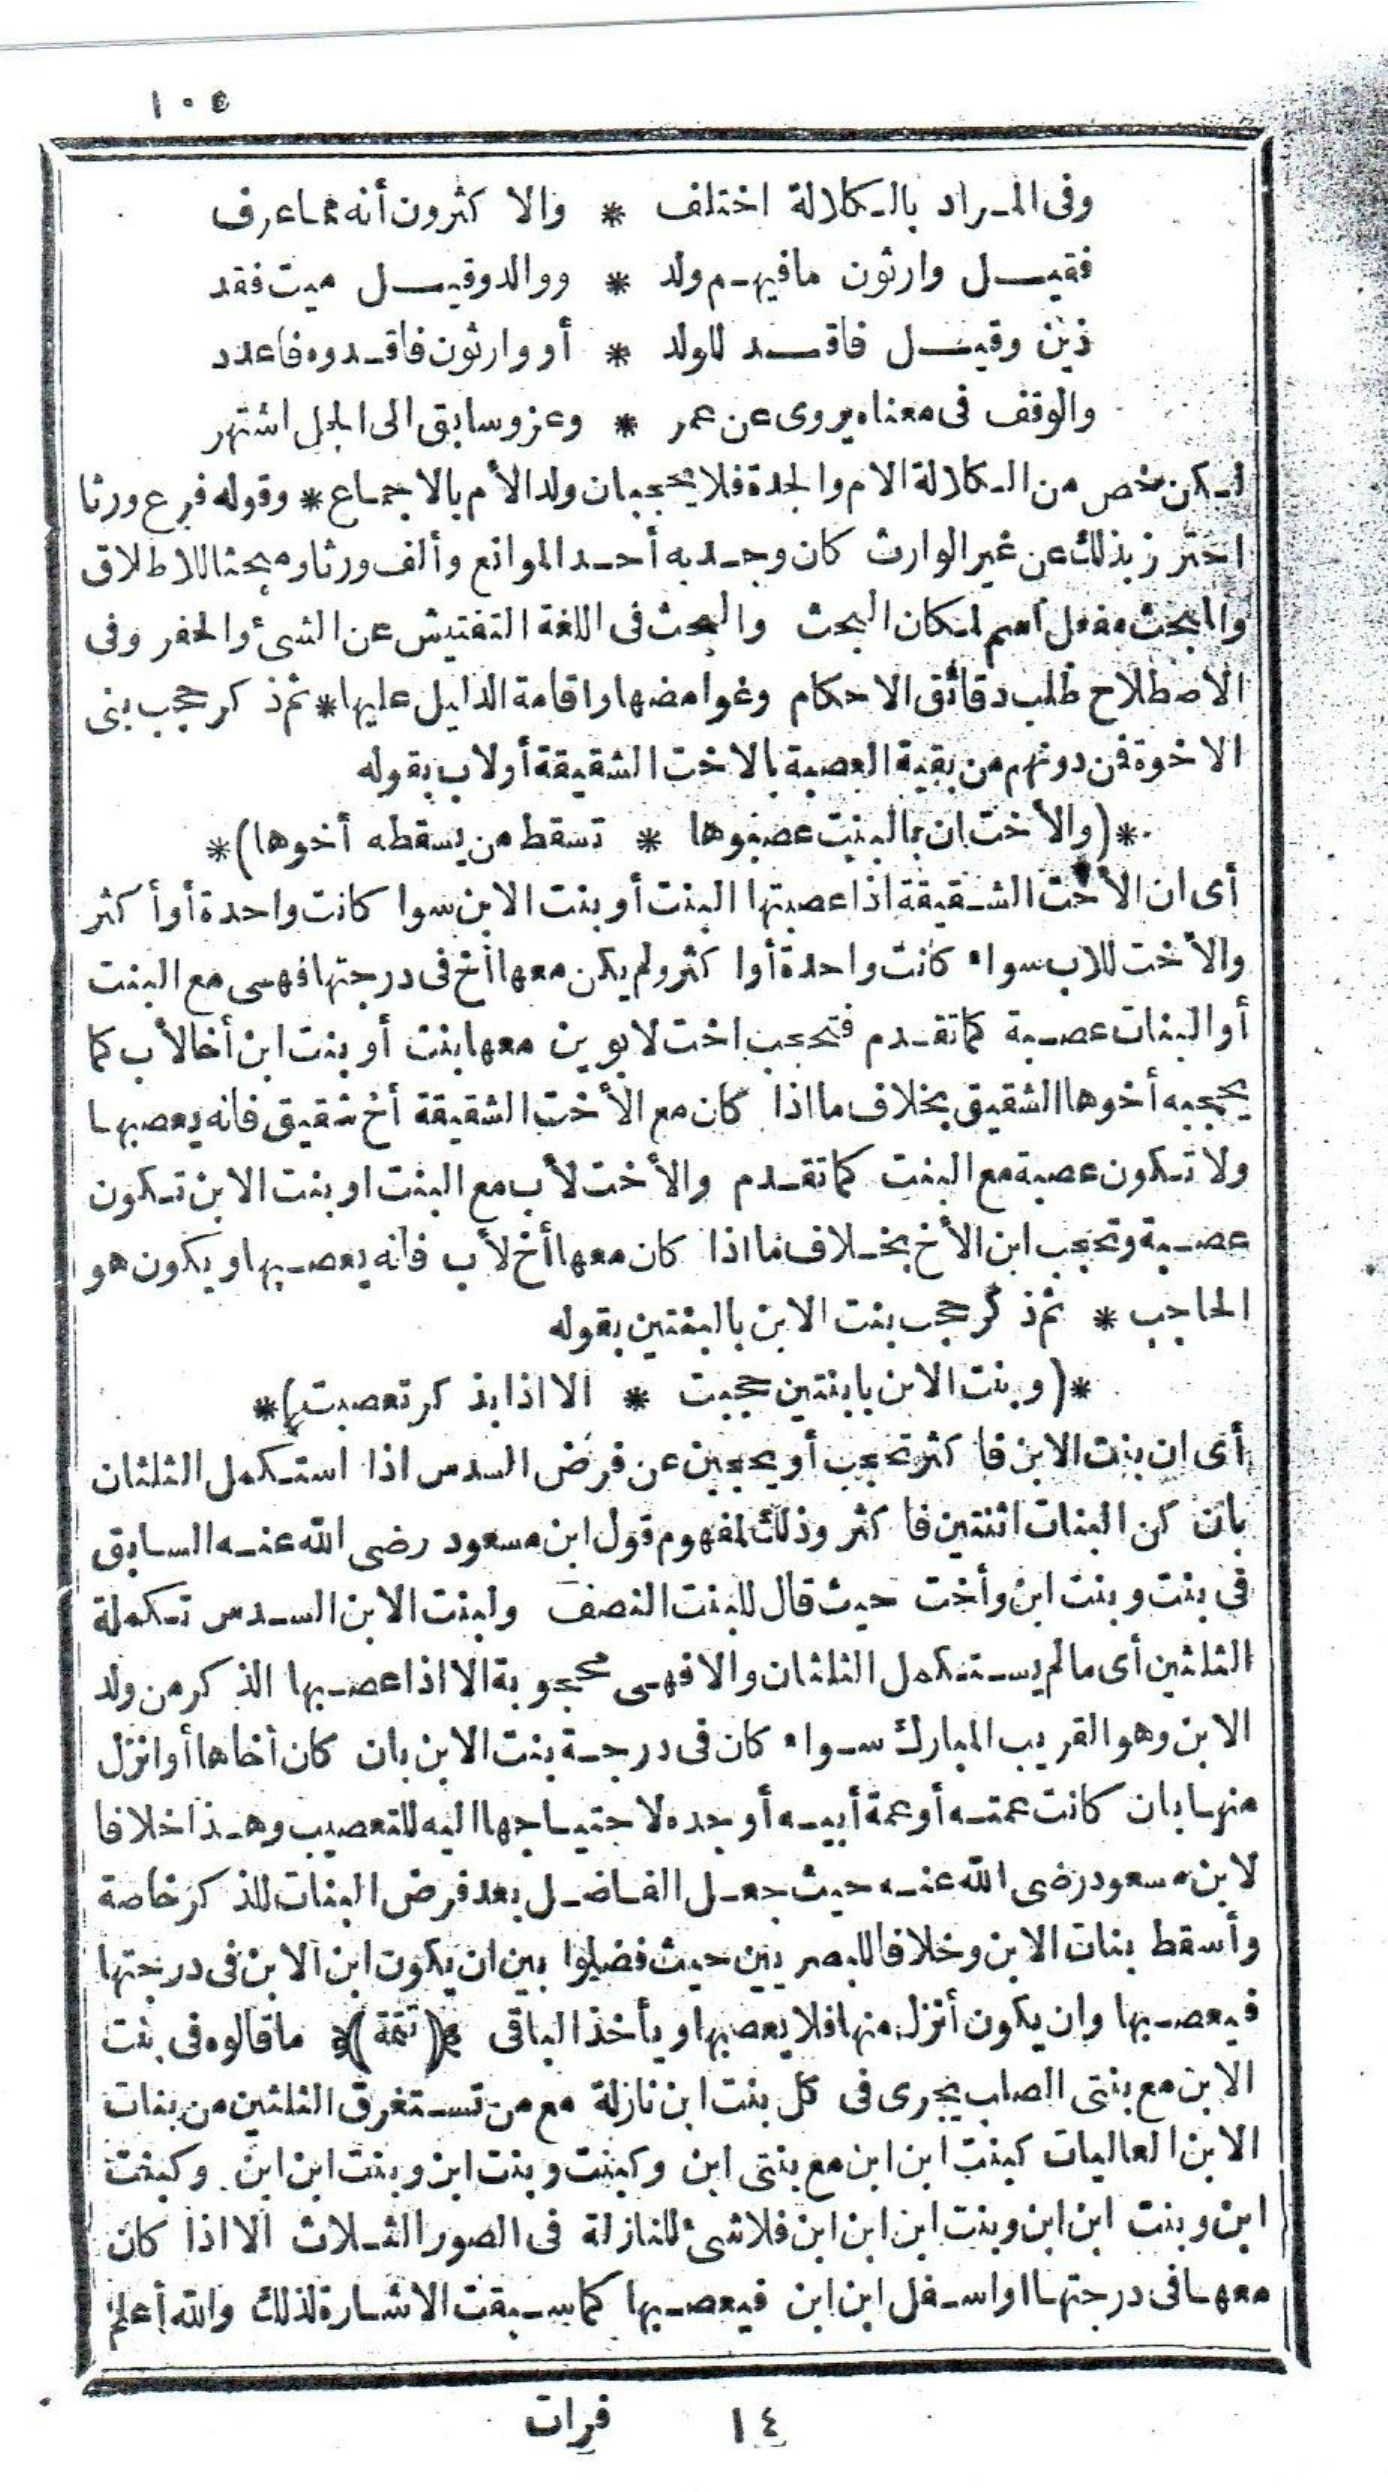 ١٠٥
وفى المراد بالكلالة اختلف * والا كثرون أنه مما عرف
فقيل وارثون ما فيهم ولد * ووالد وقيل ميت فقد
ذين وقيل فاقد للولد * أو وارثون فاقدوه فاعدد
والوقف فى معناه يروى عن عمر * وعز وسابق الى الجل اشتهر
لكن خص من الكلالة الام والجدة فلا يحجبان ولد الأم بالاجماع * وقوله فرع ورثا
احترز بذلك عن غير الوارث كان وجد به أحد الموانع وألف ورثا ومبحثا للاطلاق
والمبحث مفعل اسم لمكان البحث والبحث فى اللغة التفتيش عن الشئ والحفر وفى
الاصطلاح طلب دقائق الاحكام وغوامضها واقامة الدليل عليها * ثم ذكر حجب بنى
الاخوة فمن دونهم من بقية العصبة بالاخت الشقيقة أولاب بقوله
*(والأخت ان بالبنت عصبوها * تسقط من يسقطه أخوها)*
أى ان الأخت الشقيقة اذا عصبتها البنت أو بنت الابن سوا كانت واحدة أو أكثر
والأخت للاب سواء كانت واحدة أوا كثر ولم يكن معها أخ فى درجتها فهى مع البنت
أو البنات عصبة كما تقدم فتحجب اخت لابوين معها بنت أو بنت ابن أخا لأب كما
يحجبه أخوها الشقيق بخلاف ما اذا كان مع الأخت الشقيقة أخ شقيق فانه يعصبها
ولا تكون عصبة مع البنت كما تقدم والأخت لأب مع البنت او بنت الابن تكون
عصبة وتحجب ابن الأخ بخلاف ما اذا كان معها أخ لأب فانه يعصبها ويكون هو
الحاجب * ثم ذكر حجب بنت الابن بالبنتين بقوله
*(وبنت الابن بابنتين حجبت * الا اذا بذكر تعصبت)*
أى ان بنت الابن فا كثر تحجب أو يحجبن عن فرض السدس اذا استكمل الثلثان
بان كن البنات اثنتين فا كثر وذلك لمفهوم قول ابن مسعود رضى الله عنه السابق
فى بنت وبنت ابن وأخت حيث قال للبنت النصف ولبنت الابن السدس تكملة
الثلثين أى ما لم يستكمل الثلثان والا فهى محجوبة الا اذا عصبها الذكر من ولد
الابن وهو القريب المبارك سواء كان فى درجة بنت الابن بان كان أخاها أو انزل
منها بان كانت عمته أو عمة أبيه أو جده لاحتياجها اليه للتعصيب وهذا خلافا
لابن مسعود رضى الله عنه حيث جعل الفاضل بعد فرض البنات للذكر خاصة
وأسقط بنات الابن وخلافا للبصريين حيث فصلوا بين ان يكون ابن الابن فى درجتها
فيعصبها وان يكون أنزل منها فلا يعصبها ويأخذ الباقى (تتمة) ما قالوه فى بنت
الابن مع بنتى الصلب يجرى فى كل بنت ابن نازلة مع من تستغرق الثلثين من بنات
الابن العاليات كبنت ابن ابن مع بنتى ابن وكبنت وبنت ابن وبنت ابن ابن وكبنت
ابن وبنت ابن ابن وبنت ابن ابن ابن فلا شئ للنازلة فى الصور الثلاث الا اذا كان
معها فى درجتها او اسفل ابن ابن فيعصبها كما سبقت الاشارة لذلك والله أعلم
١٤ فرات